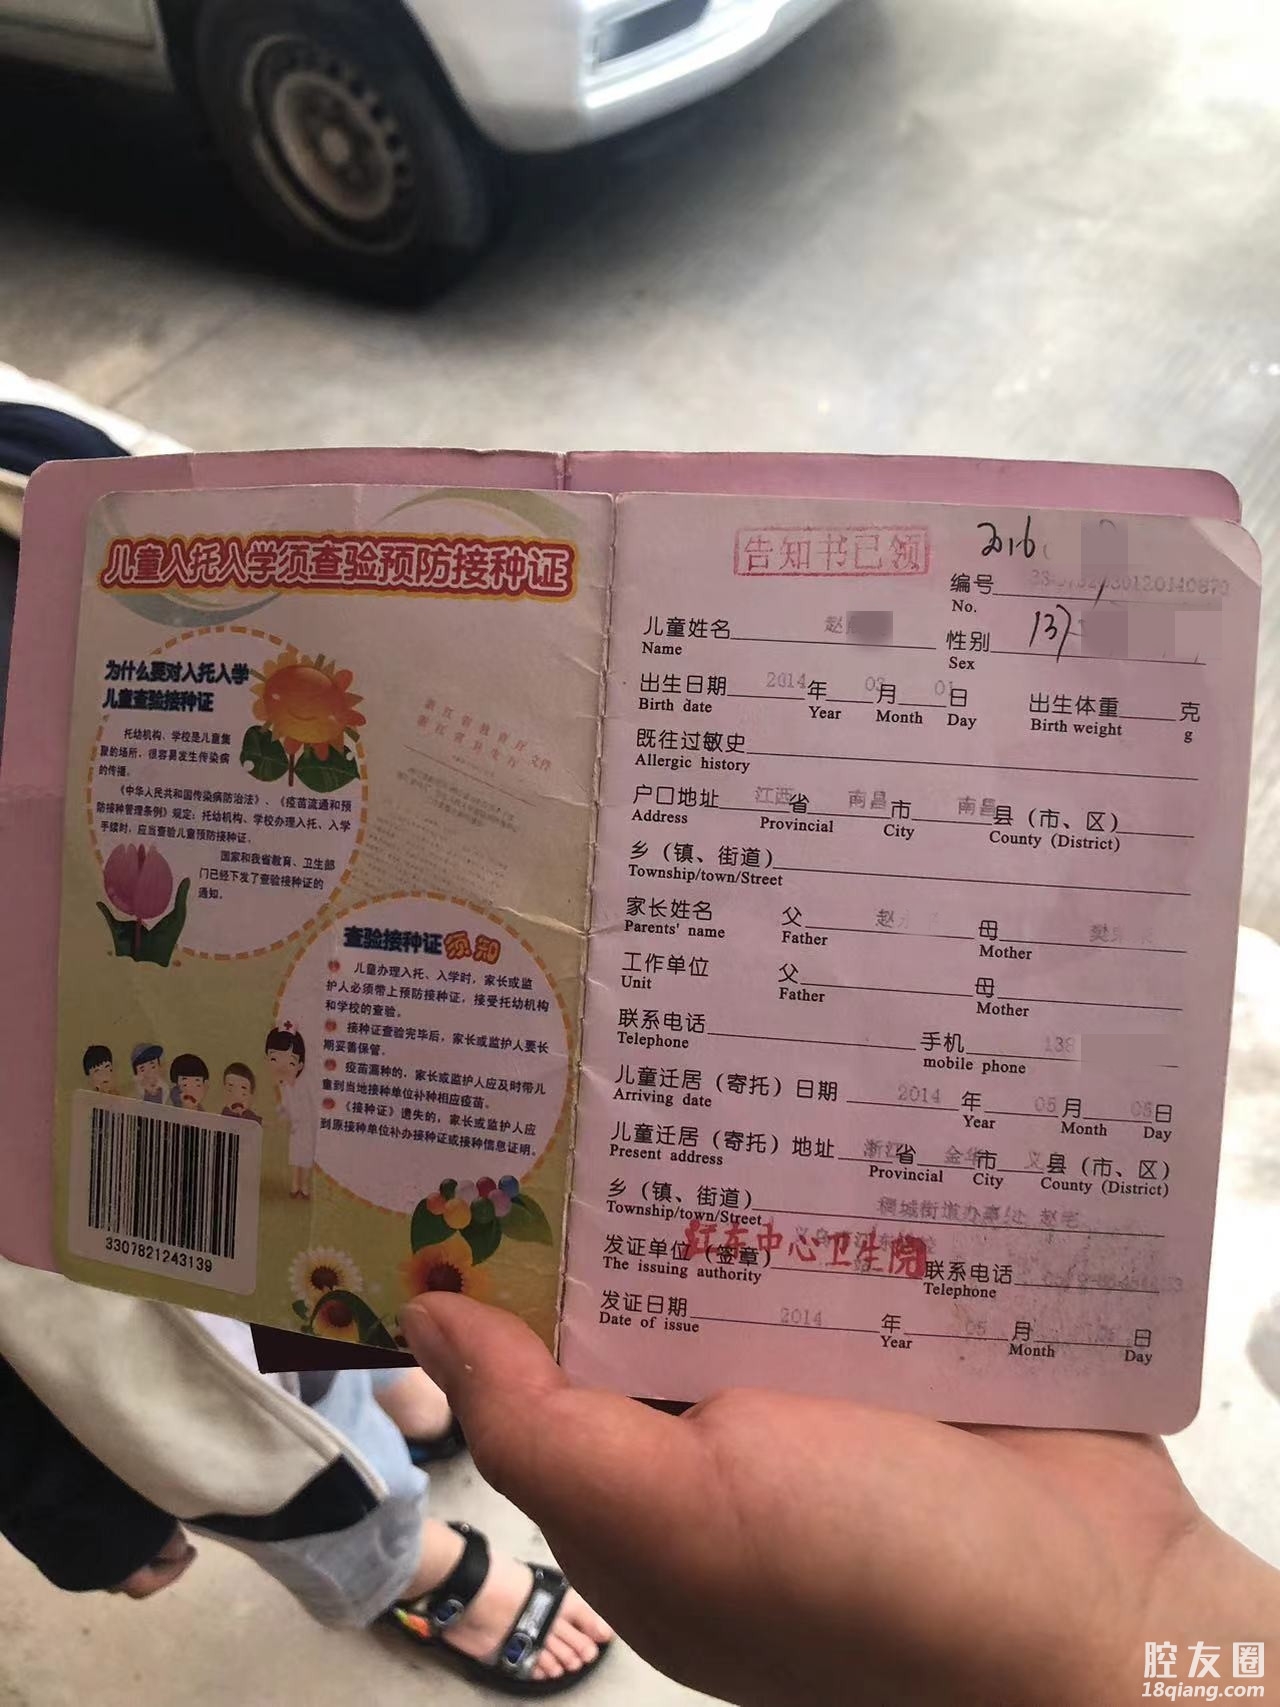 儿童入托入学须查验预防接种证
为什么要对入托入学
儿童查验接种证
托幼机构、学校是儿童集
聚的场所，很容易发生传染病
的传播。
《中华人民共和国传染病防治法》、《疫苗流通和预
防接种管理条例》规定：托幼机构、学校办理入托、入学
手续时，应当查验儿童预防接种证。
国家和我省教育、卫生部
门已经下发了查验接种证的
通知。
浙江省教育厅
浙江省卫生厅 文件
查验接种证须知
儿童办理入托、入学时，家长或监
护人必须带上预防接种证，接受托幼机构
和学校的查验。
接种证查验完毕后，家长或监护人要长
期妥善保管。
疫苗漏种的，家长或监护人应及时带儿
童到当地接种单位补种相应疫苗。
《接种证》遗失的，家长或监护人应
到原接种单位补办接种证或接种信息证明。
3307821243139
告知书已领
2016
编号
No.
137
儿童姓名 赵 性别
Name Sex
出生日期 2014 年 03 月 01 日 出生体重 克
Birth date Year Month Day Birth weight g
既往过敏史
Allergic history
户口地址 江西 省 南昌 市 南昌 县（市、区）
Address Provincial City County (District)
乡（镇、街道）
Township/town/Street
家长姓名 父 赵 母 樊
Parents' name Father Mother
工作单位 父 母
Unit Father Mother
联系电话 手机 138
Telephone mobile phone
儿童迁居（寄托）日期 2014 年 05 月 05 日
Arriving date Year Month Day
儿童迁居（寄托）地址 浙江 省 金华 市 义 县（市、区）
Present address Provincial City County (District)
乡（镇、街道） 稠城街道办事处 赵宅
Township/town/Street
发证单位（签章） 江东中心卫生院 联系电话
The issuing authority Telephone
发证日期 2014 年 05 月 日
Date of issue Year Month Day
腔友圈
18qiang.com